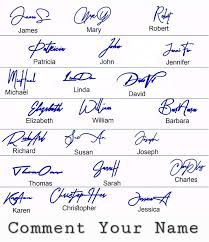 James S. Mary Robert
James Mary Robert
Patricia John Jennifer
Patricia John Jennifer
Michael Linda David
Michael Linda David
Elizabeth William Barbara
Elizabeth William Barbara
Richard Susan Joseph
Richard Susan Joseph
Thomas Sarah Charles
Thomas Sarah Charles
Karen Christopher Jessica
Karen Christopher Jessica
Comment Your Name